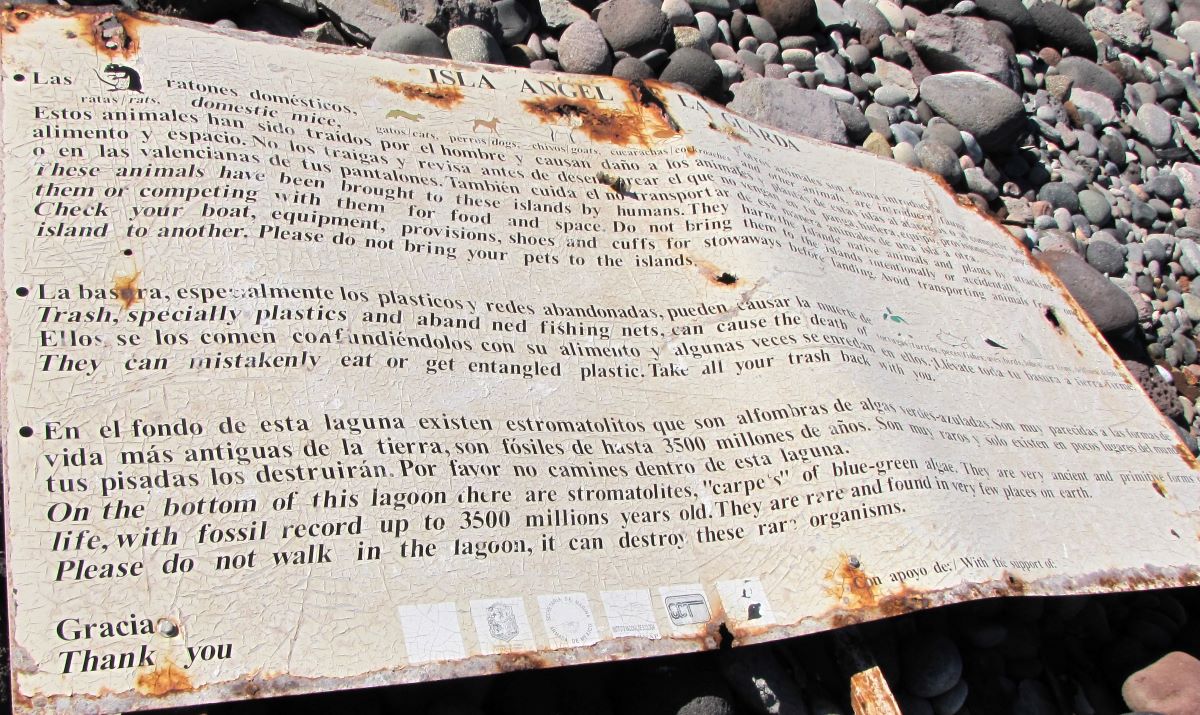 ISLA ANGEL LA GUARDA
• Las ratones domésticos,
ratas/rats, domestic mice, gatos/cats, perros/dogs, chivos/goats, cucarachas/cockroaches
Estos animales han sido traidos por el hombre y causan daño a los animales
alimento y espacio. No los traigas y revisa antes de desembarcar el que no vengan en tu panga,
o en las valencianas de tus pantalones. También cuida el no transportar de esa manera animales de una isla a otra.
These animals have been brought to these islands by humans. They harm the islands' native animals and plants by attacking
them or competing with them for food and space. Do not bring them to the islands intentionally or accidentally.
Check your boat, equipment, provisions, shoes and cuffs for stowaways before landing. Avoid transporting animals from one
island to another. Please do not bring your pets to the islands.
• La basura, especialmente los plasticos y redes abandonadas, pueden causar la muerte de
Trash, specially plastics and aband ned fishing nets, can cause the death of
Ellos se los comen confundiéndolos con su alimento y algunas veces se enredan en ellos. Llévate toda tu basura a tierra firme.
They can mistakenly eat or get entangled plastic. Take all your trash back with you.
• En el fondo de esta laguna existen estromatolitos que son alfombras de algas verdes-azuladas. Son muy parecidas a las formas de
vida más antiguas de la tierra, son fósiles de hasta 3500 millones de años. Son muy raros y solo existen en pocos lugares del mundo
tus pisadas los destruirán. Por favor no camines dentro de esta laguna.
On the bottom of this lagoon there are stromatolites, "carpe's" of blue-green algae. They are very ancient and primitive forms
life, with fossil record up to 3500 millions years old. They are rare and found in very few places on earth.
Please do not walk in the lagoon, it can destroy these rare organisms.
Con apoyo de:/ With the support of:
Gracia
Thank you
SECRETARIA DE MARINA
ARMADA DE MEXICO
GCT